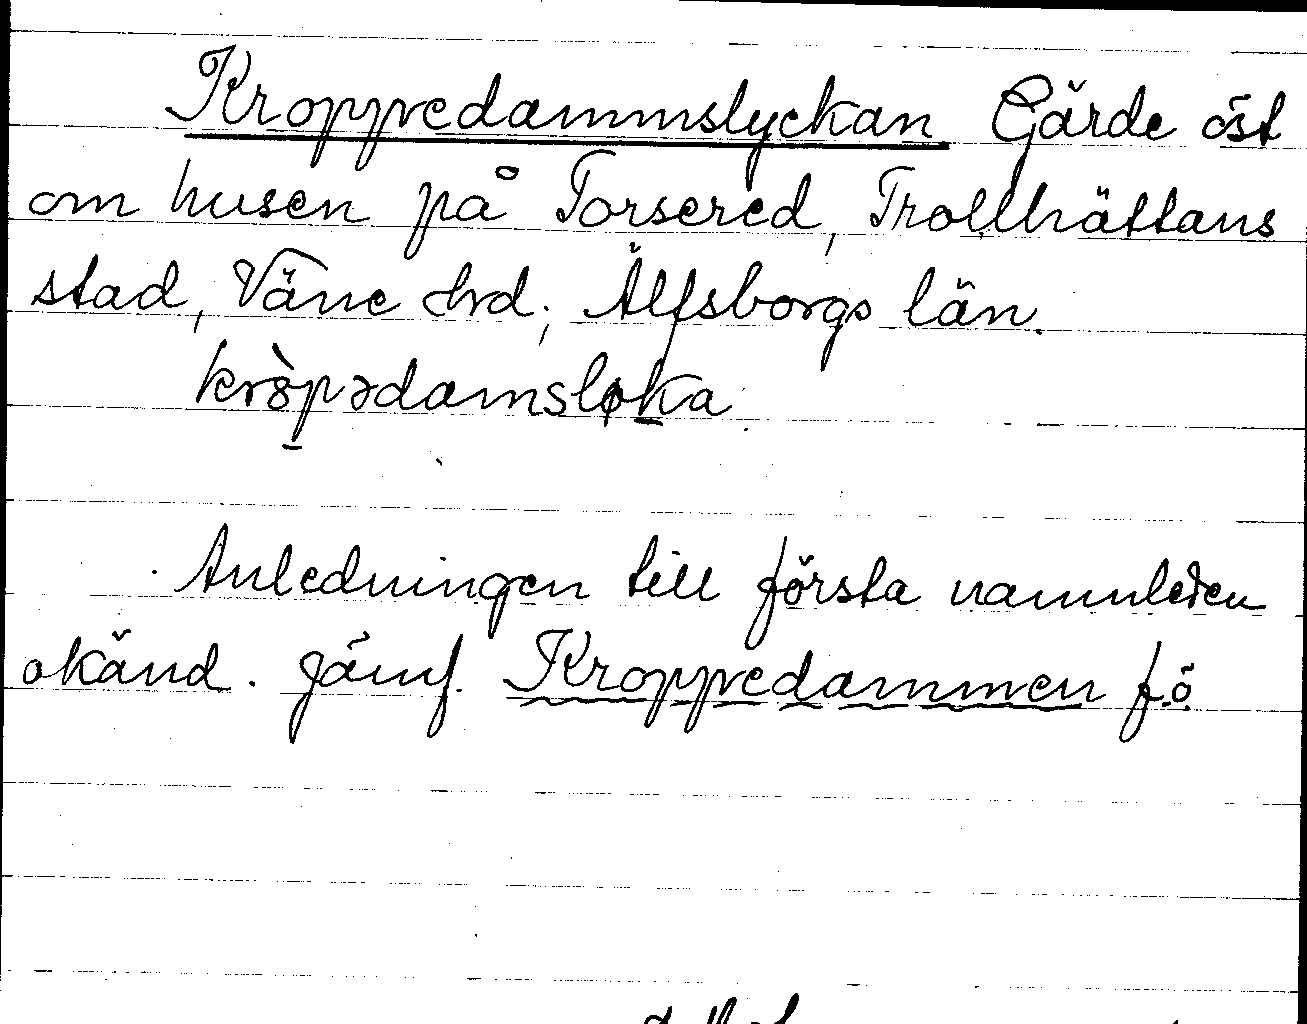 Kroppedammslyckan Gärde öst
om husen på Torsered, Trollhättans
stad, Väne hrd; Älfsborgs län.
kròpədamsløka
Anledningen till första namnleden
okänd. Jämf. Kroppedammen fö